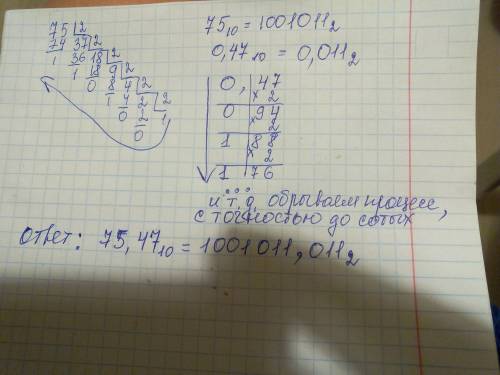 75 | 2
74 37 | 2
1 36 18 | 2
1 18 9 | 2
0 8 4 | 2
1 4 2 | 2
0 2 1
0
75₁₀ = 1001011₂
0,47₁₀ = 0,011₂
0, 47
× 2
0 94
× 2
1 88
× 2
1 76
и т.д. обрываем процесс,
с точностью до сотых
Ответ: 75,47₁₀ = 1001011,011₂